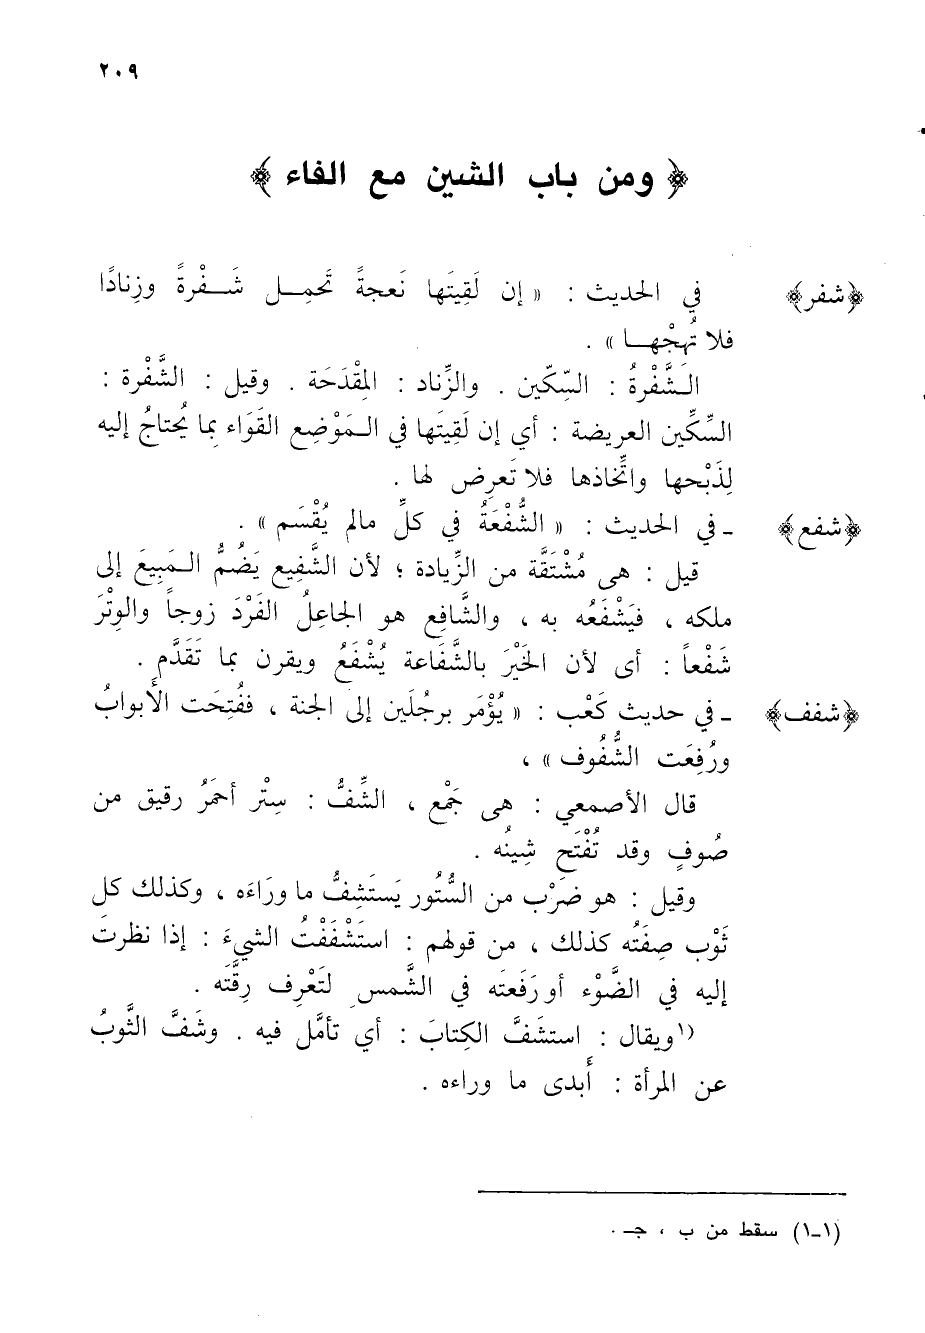 ٢٠٩
﴿ ومن باب الشين مع الفاء ﴾
﴿شفر﴾ في الحديث : « إن لَقِيتَها نَعجةً تَحمِـل شَـفْرةً وزِنادًا
فلا تُهِجْهـا » .
الـشَّفْرةُ : السِّكّين . والزِّناد : المِقْدَحَة . وقيل : الشَّفْرة :
السِّكِّين العريضة : أي إن لَقِيتَها في الـمَوْضِع القَوَاء بِما يُحتاجُ إليه
لِذَبْحها واتِّخاذها فلا تَعرِض لها .
﴿شفع﴾ ـ في الحديث : « الشُّفْعَةُ في كلِّ مالم يُقْسَم » .
قيل : هى مُشْتَقَّة من الزِّيادة ؛ لأن الشَّفِيع يَضُمُّ الـمَبِيعَ إلى
ملكه ، فيَشْفَعُه به ، والشَّافِع هو الجاعِلُ الفَرْدَ زوجاً والوِتْرَ
شَفْعاً : أى لأن الخَيْرَ بالشَّفاعة يُشْفَعُ ويقرن بما تَقَدَّم .
﴿شفف﴾ ـ في حديث كَعْب : « يُؤْمَر برجُلَين إلى الجنة ، ففُتِحَت الأَبوابُ
ورُفِعَت الشُّفُوف » ،
قال الأصمعي : هى جَمْع ، الشِّفُّ : سِتْر أحمَرُ رقيق من
صُوفٍ وقد تُفْتَح شِينُه .
وقيل : هو ضَرْب من السُّتُور يَستَشِفُّ ما ورَاءَه ، وكذلك كل
ثَوْب صِفَتُه كذلك ، من قولهم : استَشْفَفْتُ الشيءَ : إذا نظرتَ
إليه في الضَّوْء أو رَفَعتَه في الشَّمس لتَعْرِف رِقَّتَه .
(١ويقال : استشَفَّ الكِتابَ : أي تأمَّل فيه . وشَفَّ الثَّوبُ
عن المرأة : أَبدى ما وراءه .
(١ـ١) سقط من ب ، جـ .